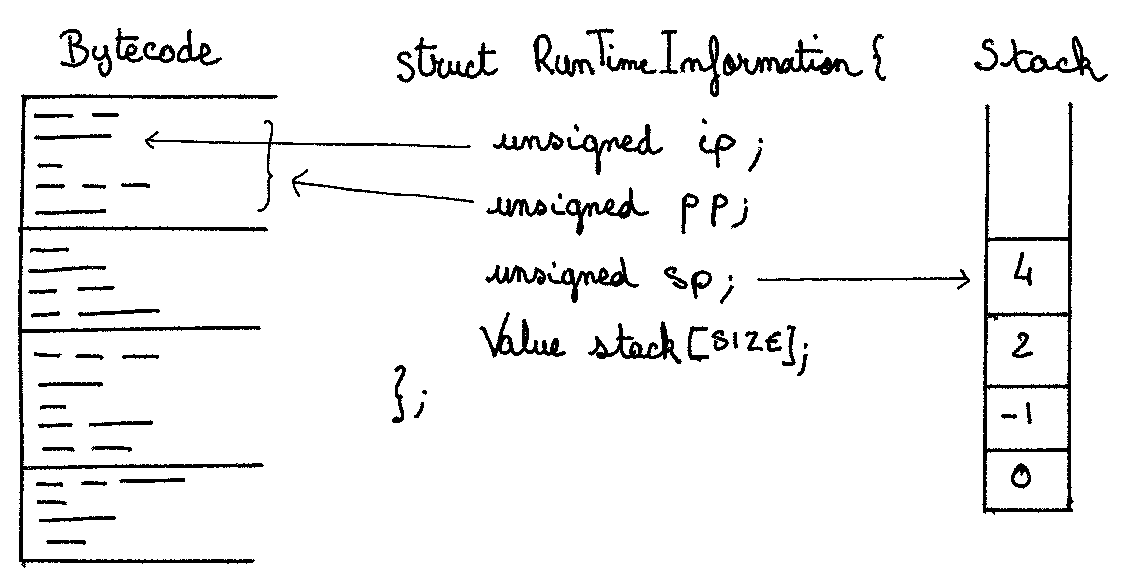 Bytecode
struct RunTimeInformation {
unsigned ip;
unsigned pp;
unsigned sp;
Value stack[SIZE];
};
Stack
4
2
-1
0